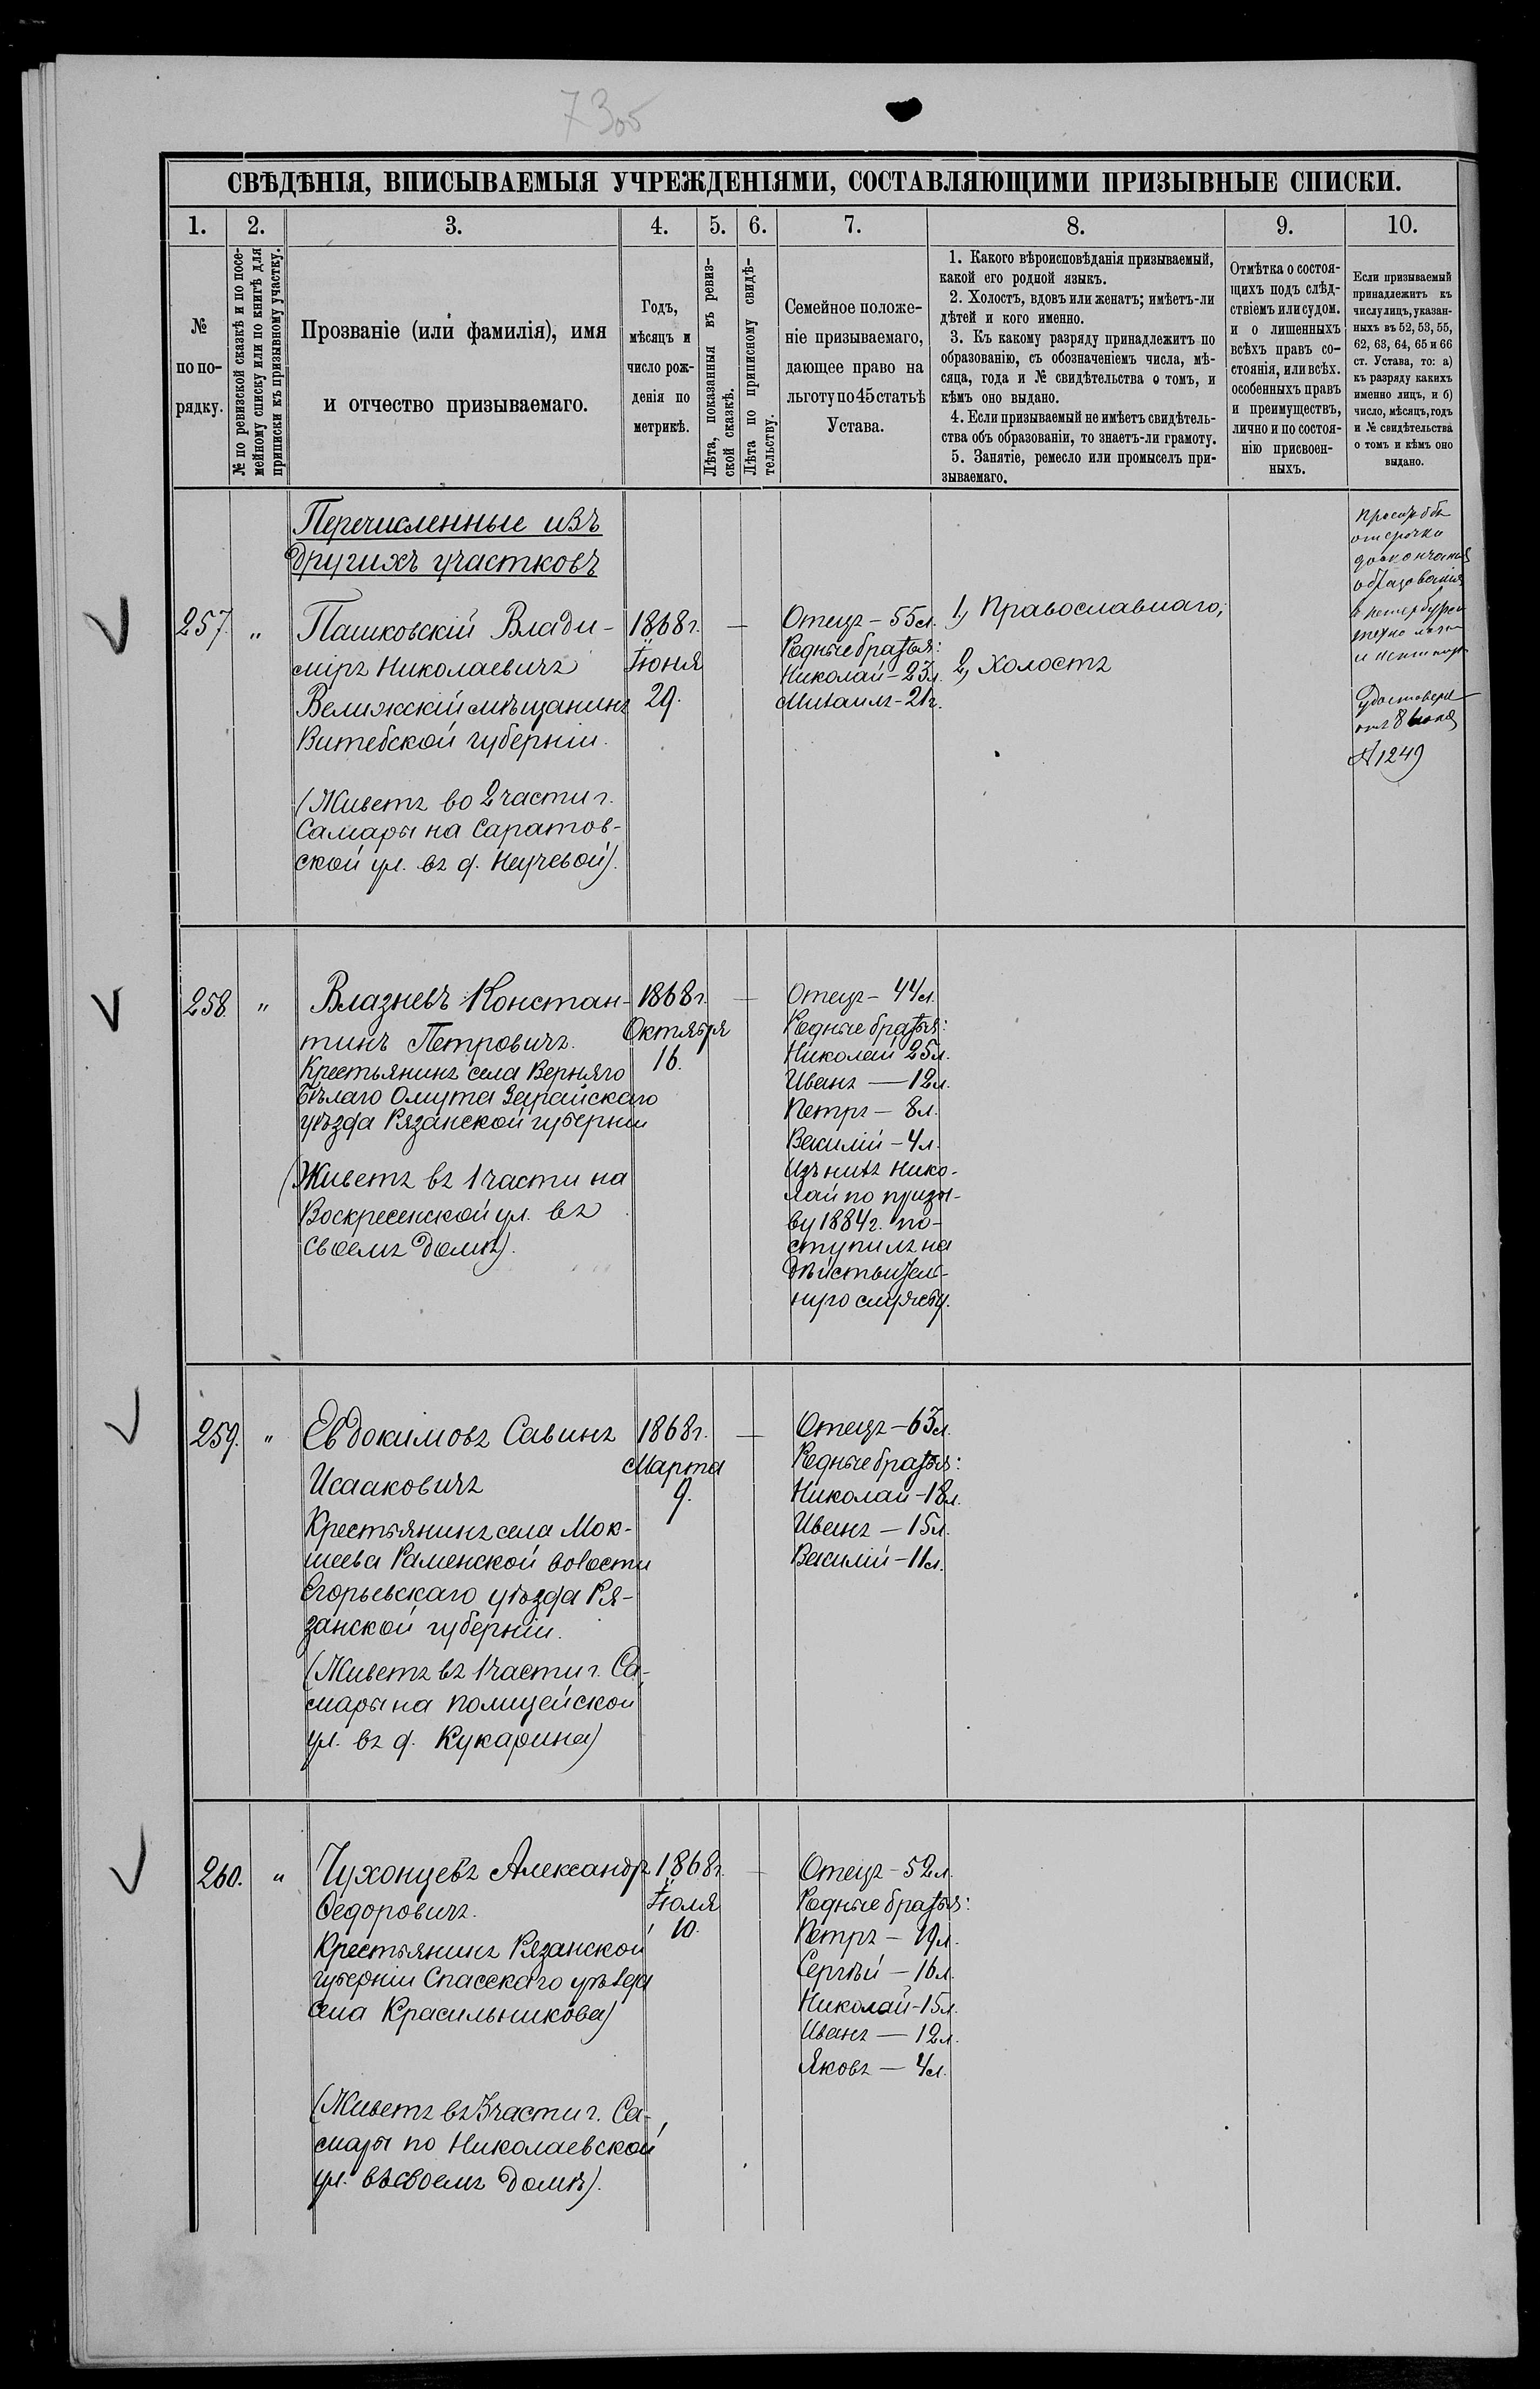 7305
СВѢДѢНІЯ, ВПИСЫВАЕМЫЯ УЧРЕЖДЕНІЯМИ, СОСТАВЛЯЮЩИМИ ПРИЗЫВНЫЕ СПИСКИ.
1.
2.
3.
4.
5.
6.
7.
8.
9.
10.
№
по по-
рядку.
№ по ревизской сказкѣ и по посе-
мейному списку или по книгѣ для
приписки къ призывному участку.
Прозваніе (или фамилія), имя
и отчество призываемаго.
Годъ,
мѣсяцъ и
число рож-
денія по
метрикѣ.
Лѣта, показанныя въ ревиз-
ской сказкѣ.
Лѣта по приписному свидѣ-
тельству.
Семейное положе-
ніе призываемаго,
дающее право на
льготу по 45 статьѣ
Устава.
1. Какого вѣроисповѣданія призываемый,
какой его родной языкъ.
2. Холостъ, вдовъ или женатъ; имѣетъ-ли
дѣтей и кого именно.
3. Къ какому разряду принадлежитъ по
образованію, съ обозначеніемъ числа, мѣ-
сяца, года и № свидѣтельства о томъ, и
кѣмъ оно выдано.
4. Если призываемый не имѣетъ свидѣтель-
ства объ образованіи, то знаетъ-ли грамоту.
5. Занятіе, ремесло или промыселъ при-
зываемаго.
Отмѣтка о состоя-
щихъ подъ слѣд-
ствіемъ или судом.
и о лишенныхъ
всѣхъ правъ со-
стоянія, или всѣх.
особенныхъ правъ
и преимуществъ,
лично и по состоя-
нію присвоен-
ныхъ.
Если призываемый
принадлежитъ къ
числу лицъ, указан-
ныхъ въ 52, 53, 55,
62, 63, 64, 65 и 66
ст. Устава, то: а)
къ разряду какихъ
именно лицъ, и б)
число, мѣсяцъ, годъ
и № свидѣтельства
о томъ и кѣмъ оно
выдано.
Перечисленные изъ
другихъ участковъ
257. "
Пашковскій Влади-
міръ Николаевичъ
Велижскій мѣщанинъ
Витебской губерніи.
(Живетъ во 2 части г.
Самары на Саратов-
ской ул. въ д.
1868 г.
Іюня
29.
—
Отецъ – 55 л.
Родные братья:
Николай – 23 л.
Михаилъ – 21 г.
1, Православнаго,
2, холостъ
отсрочки
образованія
№ 1249
258. "
Влазневъ Констан-
тинъ Петровичъ.
Крестьянинъ села Верняго
Бѣлаго Омута Зарайскаго
уѣзда Рязанской губерніи
(Живетъ въ 1 части на
Воскресенской ул. въ
своемъ домѣ).
1868 г.
Октября
16.
—
Отецъ – 44 л.
Родные братья:
Николай 25 л.
Иванъ — 12 л.
Петръ – 8 л.
Василій – 4 л.
Изъ нихъ Нико-
лай по призы-
ву 1884 г. по-
ступилъ на
дѣйствитель-
ную службу.
259. "
Евдокимовъ Савинъ
Исааковичъ
Крестьянинъ села Мок-
шеева Раменской волости
Егорьевскаго уѣзда Ря-
занской губерніи.
(Живетъ въ 1 части г. Са-
мары на Полицейской
ул. въ д. Кукарина)
1868 г.
Марта
9.
—
Отецъ – 63 л.
Родные братья:
Николай – 18 л.
Иванъ — 15 л.
Василій – 11 л.
260. "
Чухонцевъ Александръ
Ѳедоровичъ.
Крестьянинъ Рязанской
губерніи Спасскаго уѣзда
села Красильникова)
(Живетъ въ 3 части г. Са-
мары по Николаевской
ул. въ своемъ домѣ).
1868 г.
Іюля
10.
—
Отецъ – 52 л.
Родные братья:
Петръ – 19 л.
Сергѣй – 16 л.
Николай – 15 л.
Иванъ — 12 л.
Яковъ — 4 л.